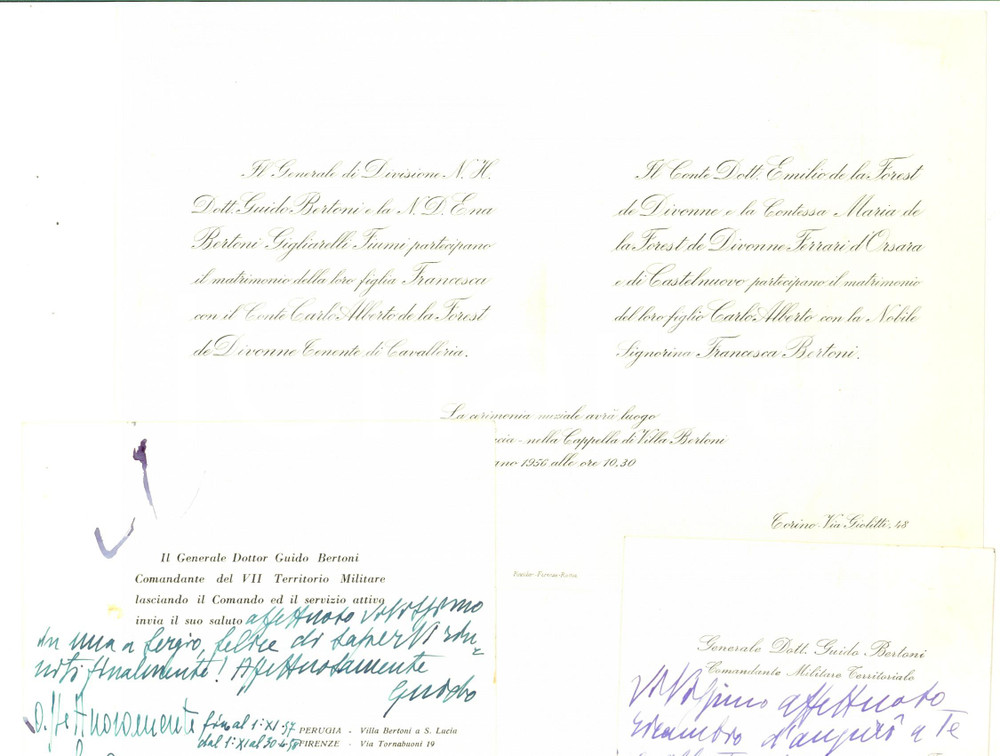 Il Generale di Divisione N. H.
Dott. Guido Bertoni e la N. D. Ena
Bertoni Gigliarelli Fiumi partecipano
il matrimonio della loro figlia Francesca
con il Conte Carlo Alberto de la Forest
de Divonne Tenente di Cavalleria.
Il Conte Dott. Emilio de la Forest
de Divonne e la Contessa Maria de
la Forest de Divonne Ferrari d'Orsara
e di Castelnuovo partecipano il matrimonio
del loro figlio Carlo Alberto con la Nobile
Signorina Francesca Bertoni.
La cerimonia nuziale avrà luogo
nella Cappella di Villa Bertoni
1956 alle ore 10,30
Torino - Via Giolitti, 48
Il Generale Dottor Guido Bertoni
Comandante del VII Territorio Militare
lasciando il Comando ed il servizio attivo
invia il suo saluto affettuoso vivissimo
in una a Sergio, felice di saperVi riu-
niti finalmente! Affettuosamente
Guido
Affettuosamente
fino al 1:XI:57
dal 1:XI al 30-4-58
PERUGIA - Villa Bertoni a S. Lucia
FIRENZE - Via Tornabuoni 19
Generale Dott. Guido Bertoni
Comandante Militare Territoriale
vivissimo affettuoso
ricambio d'auguri a te